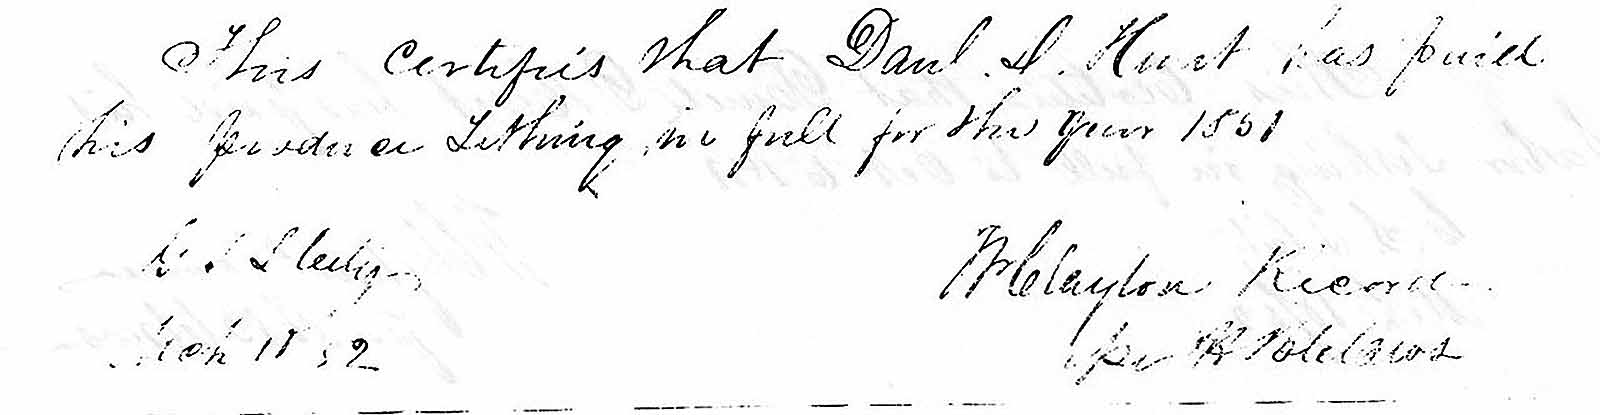 This certifis that Danl. D. Hunt has paid
his produce Tithing in full for the year 1851
G. S. L. City
Mch 18 52
W Clayton Recorder
per